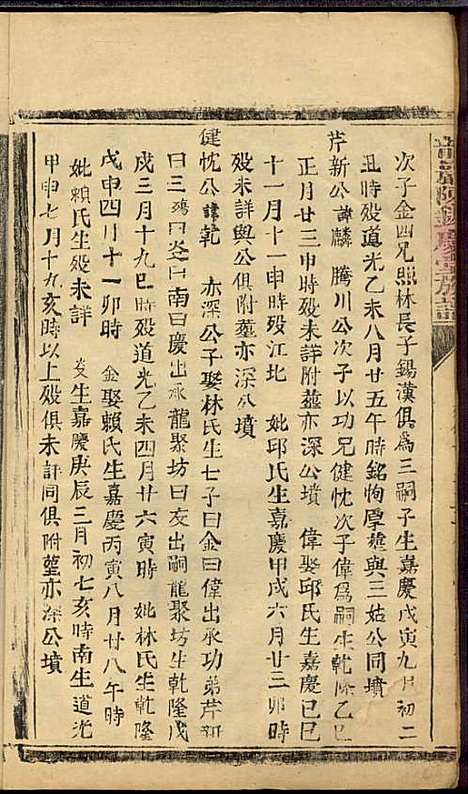 次子金四兄照林長子錫漢俱為三嗣子生嘉慶戊寅九月初二
丑時殁道光乙未八月廿五午時銘恂厚葬與三姑公同墳
芹新公諱麟 騰川公次子以功兄健忱次子偉為嗣生乾隆乙巳
正月廿三申時殁未詳附葬亦深公墳 偉娶邱氏生嘉慶己巳
十一月十一申時殁江北 妣邱氏生嘉慶甲戌六月廿三卯時
殁未詳與公俱附葬亦深公墳
健忱公諱乾 亦深公子娶林氏生七子曰金曰偉出承功弟芹新
曰三 曰炎曰南曰慶出承龍聚坊曰友出嗣龍聚坊生乾隆戊
戌三月十九巳時殁道光乙未四月廿六寅時 妣林氏生乾隆
戊申四月十一卯時 金娶賴氏生嘉慶丙寅八月廿八午時
妣賴氏生殁未詳 炎生嘉慶庚辰三月初七亥時南生道光
甲申七月十九亥時以上殁俱未詳同俱附葬亦深公墳